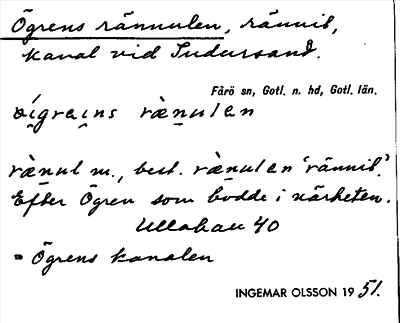 Ögrens rännulen, rännil,
kanal vid Sudersand.
Fårö sn, Gotl. n. hd, Gotl. län.
øígrains rænulen
rænul m., best. rænulen 'rännil'.
Efter Ögren som bodde i närheten.
Ullahau 40
= Ögrens kanalen
INGEMAR OLSSON 1951.